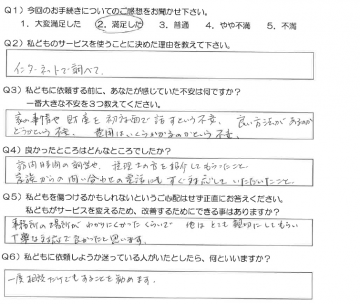 Q1)今回のお手続きについてのご感想をお聞かせ下さい。
1.大変満足した 2.満足した 3.普通 4.やや不満 5.不満
Q2)私どものサービスを使うことに決めた理由を教えて下さい。
インターネットで調べて。
Q3)私どもに依頼する前に、あなたが感じていた不安は何ですか?
一番大きな不安を3つ教えてください。
家の事情や財産を初対面で話すという不安。良い方法があるのか
どうかという不安。費用はいくらかかるのかという不安。
Q4)良かったところはどんなところでしたか?
訪問時間の調整や、税理士の方を紹介してもらったこと
家族からの問い合わせの電話にもすぐ対応していただいたこと。
Q5)私どもを傷つけるかもしれないというご心配はせず正直にお答えください。
私どもがサービスを変えるため、改善するためにできる事はありますか?
事務所の場所がわかりにくかったくらいで 他はとても親切にしてもらい
丁寧な手続で良かったと思います。
Q6)私どもに依頼しようか迷っている人がいたとしたら、何といいますか?
一度相談だけでもすることを勧めます。